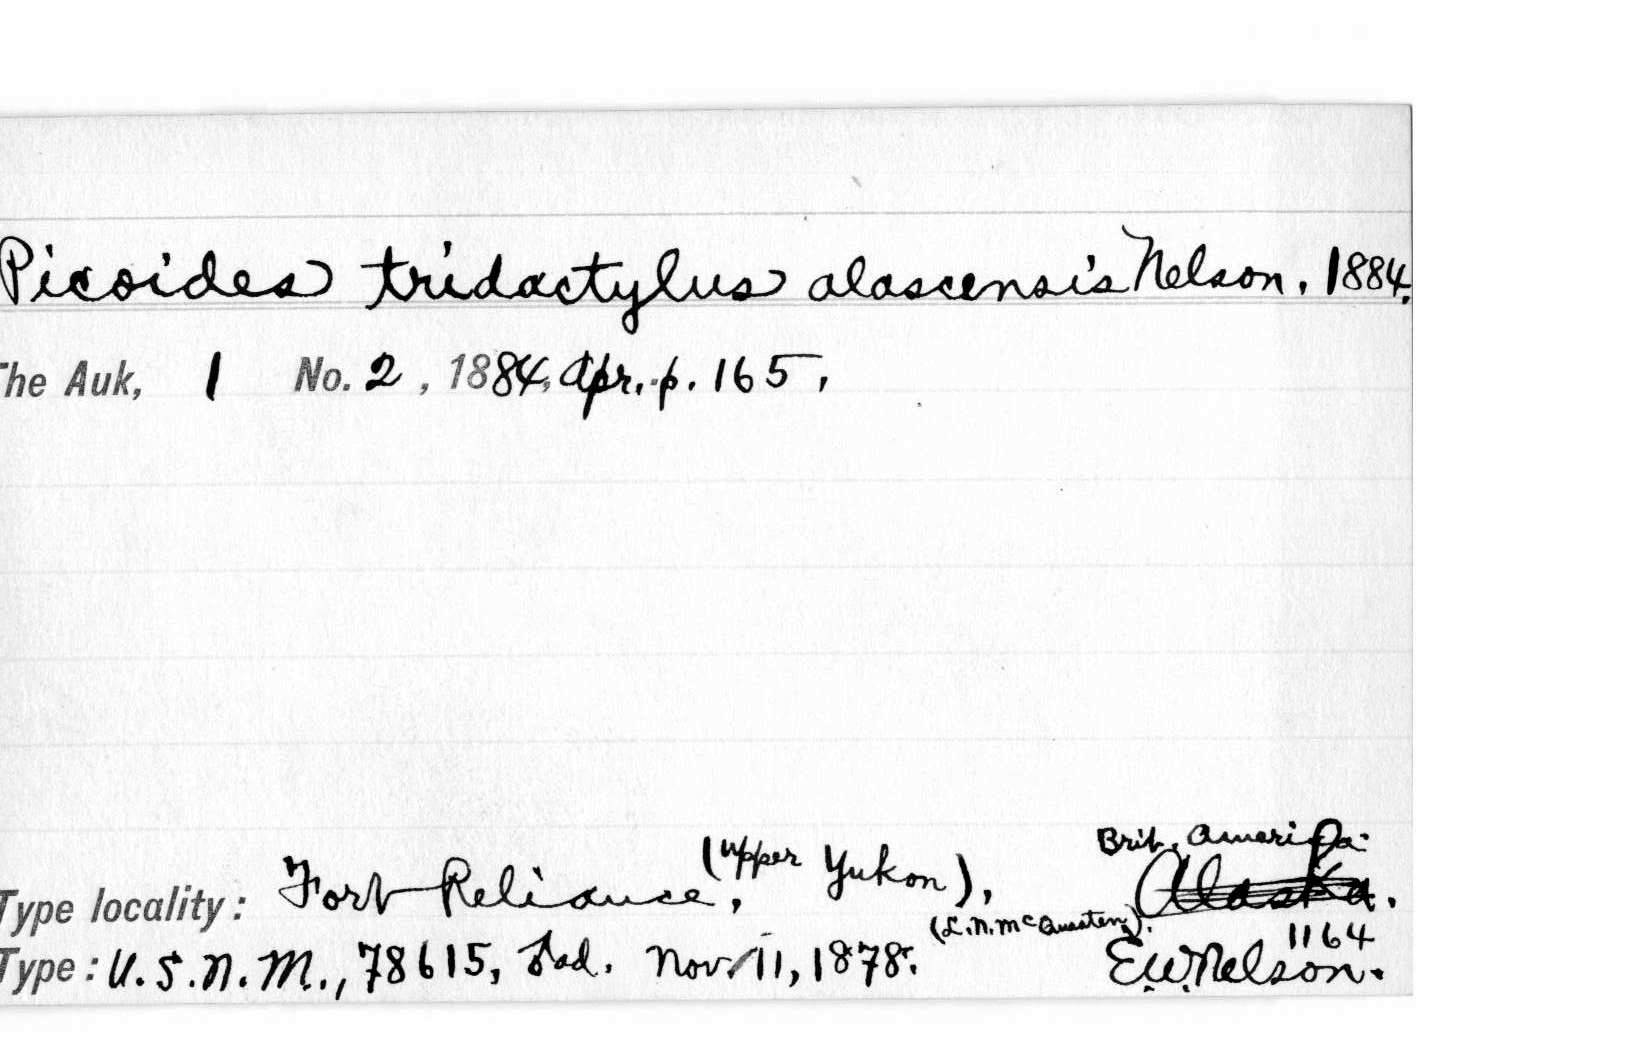 Picoides tridactylus alascensis Nelson, 1884.
The Auk, 1 No. 2, 1884, Apr. p. 165,
Brit. America.
Type locality: Fort Reliance, (Upper Yukon), Alaska.
(L.N. McQuesten). 1164
Type: U.S.N.M., 78615, ad. Nov. 11, 1878. E.W. Nelson.